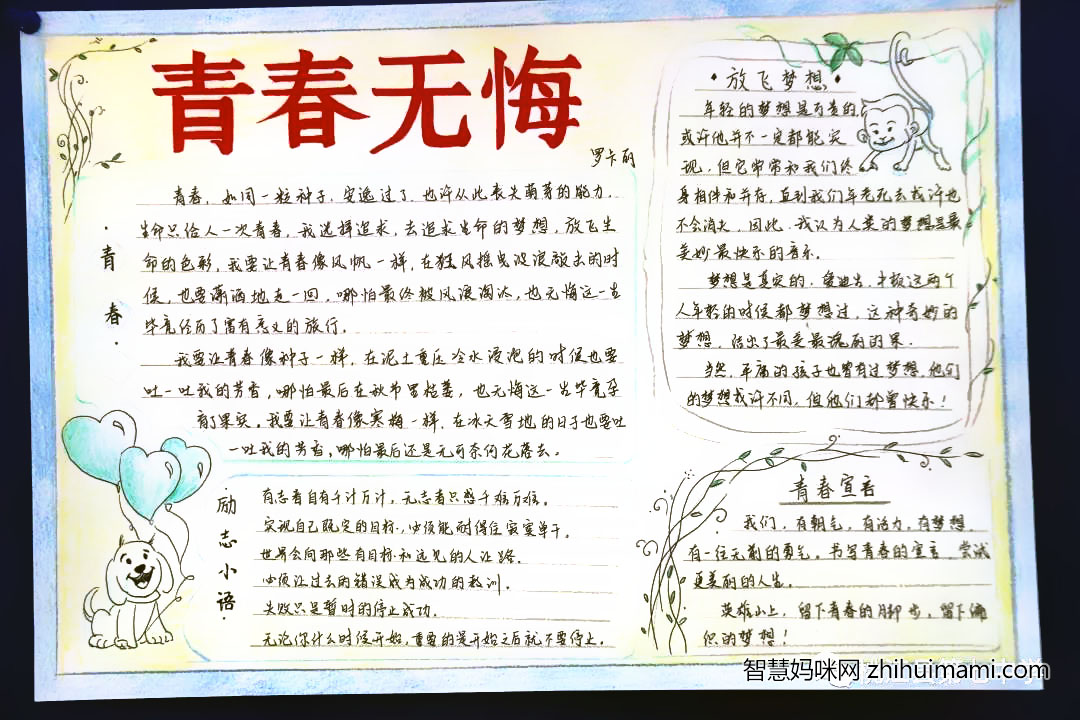 青春无悔
罗卡丽
青春
青春，如同一粒种子，安逸过了，也许从此丧失萌芽的能力，
生命只给人一次青春，我选择追求，去追求生命的梦想，放飞生
命的色彩，我要让青春像风帆一样，在狂风摇曳没浪敲击的时
候，也要潇洒地走一回，哪怕最终被风浪淘汰，也无悔这一生
毕竟经历了富有意义的旅行。
我要让青春像种子一样，在泥土重压冷水浸泡的时候也要
吐一吐我的芳香，哪怕最后在秋节里枯萎，也无悔这一生毕竟孕
育了果实。我要让青春像寒梅一样，在冰天雪地的日子也要吐
一吐我的芳香，哪怕最后还是无可奈何花落去。
励志小语
有志者自有千计万计，无志者只感千难万难。
实现自己既定的目标，必须能耐得住寂寞单干。
世界会向那些有目标和远见的人让路。
必须让过去的错误成为成功的教训。
失败只是暂时的停止成功。
无论你什么时候开始，重要的是开始之后就不要停止。
放飞梦想
年轻的梦想是可贵的，
或许他并不一定都能实
现，但它常常和我们终
身相伴和并存，直到我们年老死去或许也
不会消失，因此，我认为人类的梦想是最
美妙最快乐的音乐。
梦想是真实的，
人年轻的时候都梦想过，这种奇妙的
梦想，结出了最美最瑰丽的果。
当然，平庸的孩子也曾有过梦想，他们
的梦想或许不同，但他们都曾快乐！
青春宣言
我们，有朝气，有活力，有梦想，
有一往无前的勇气，书写青春的宣言，尝试
更美丽的人生。
英雄山上，留下青春的脚步，留下缤
织的梦想！
智慧妈咪网 zhihuimami.com